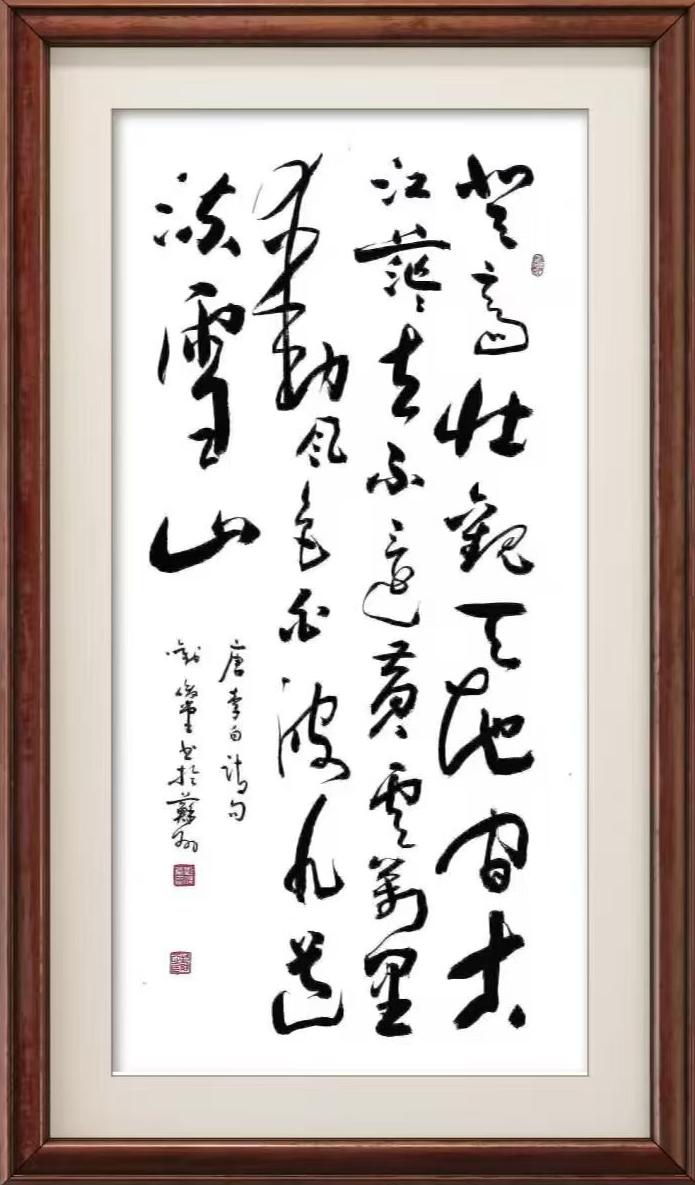 登高壯觀天地間大
江茫〻去不還黃雲萬里
動風色白波九道
流雪山
唐李白詩句
书於蘇州